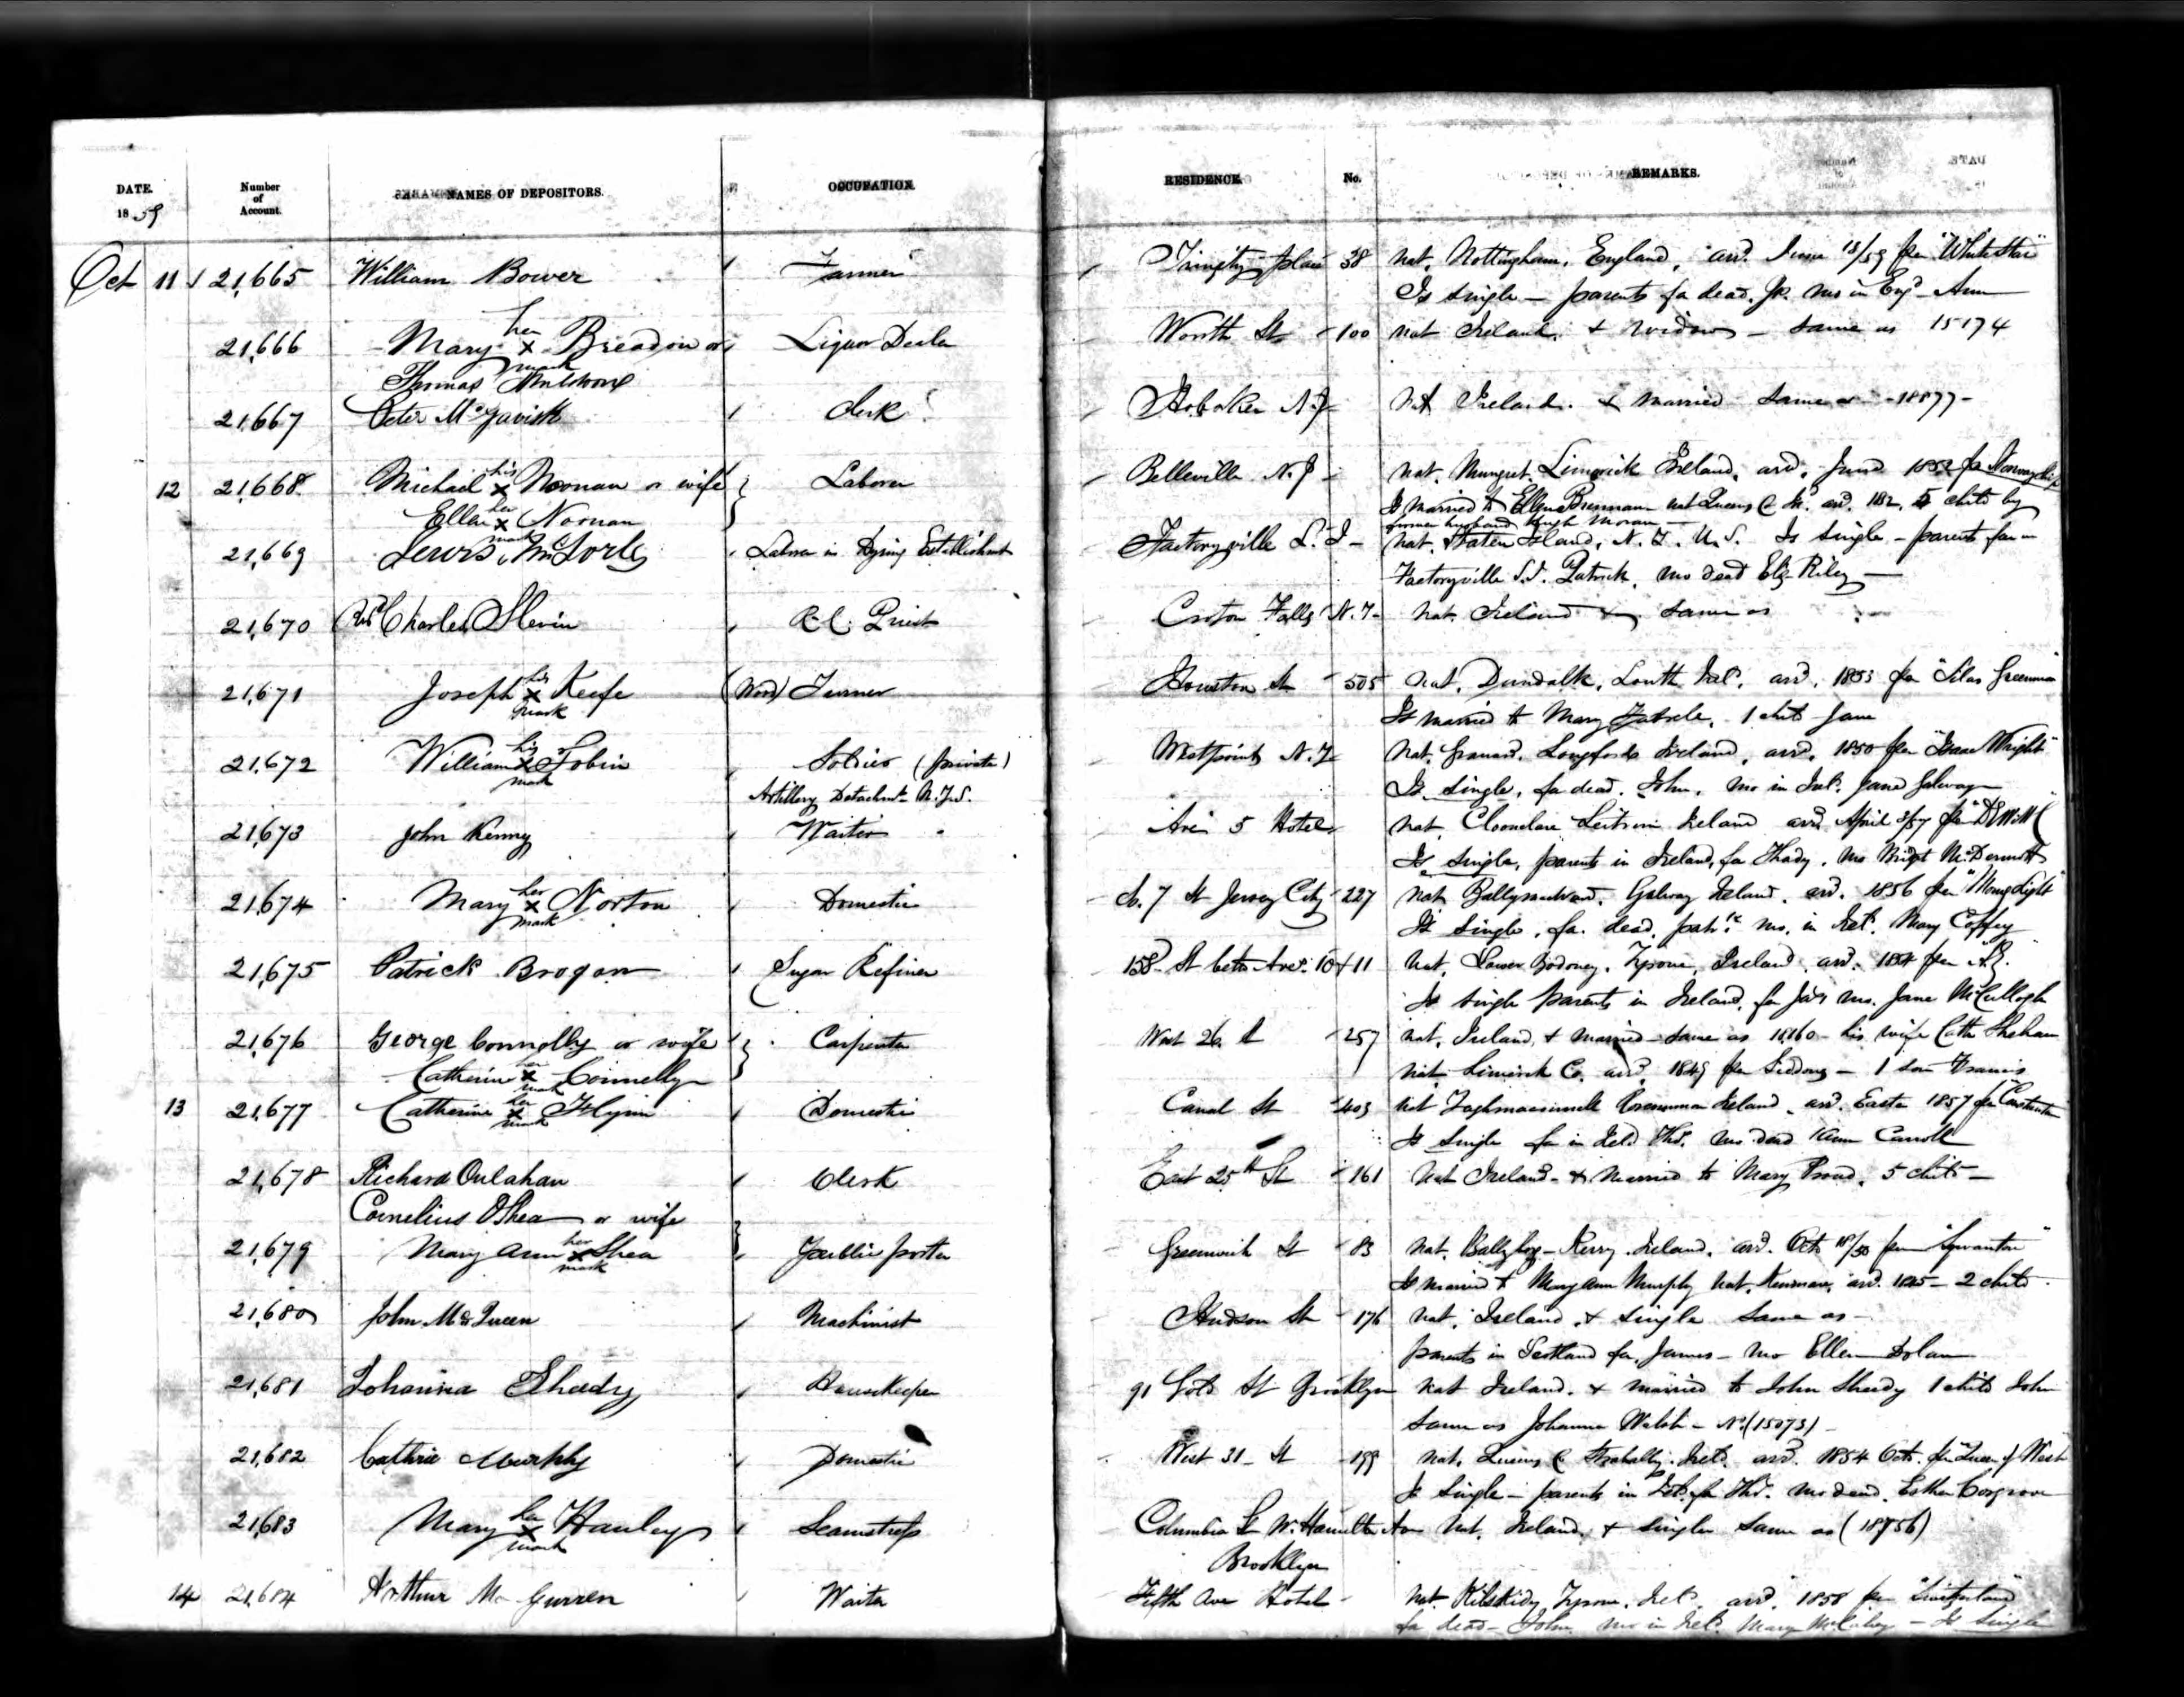 DATE. Number of Account. NAMES OF DEPOSITORS. OCCUPATION. RESIDENCE. No. REMARKS.
1859
Oct 11 21,665 William Bower Farmer Trinity place 38 nat. Nottingham, England, arrd. June 18/59 per "White Star"
Is single — parents fa dead, mo in Engd Ann
21,666 Mary her x mark Breadon or Liquor Dealer Worth St 100 nat Ireland, + widow — same as 15174
Thomas Muldoon
21,667 Peter McGavisk Clerk Hoboken N.J. nat Ireland. + married same as 18877
12 21,668 Michael his x Noonan or wife Laborer Belleville N.J. nat. Mungret Limerick Ireland, arrd. June 1852 per
Ellen her x mark Noonan Is married to Ellen Brennan nat Queens C Ir. arrd. 182, child by
former husband Hugh Moran
21,669 Lewis McSorley Labror in Dying Establishmt Factoryville S. I. nat. Staten Island, N.Y. U.S. Is single — parents fa in
Factoryville S.I. Patrick, mo dead Elz. Riley
21,670 Revd Charles Slevin R.C. Priest Croton Falls N.Y. nat. Ireland + same as
21,671 Joseph his x mark Keefe (Wood) Turner Houston St 505 nat. Dundalk, Louth Irel. arrd. 1853 per "Silas Greenman"
Is married to Mary 1 child Jane
21,672 William his x mark Tobin Soldier (private) Westpoint N.Y. nat. Granard, Longford Ireland, arrd. 1850 per "Isaac Wright"
Artillery Detachmt U.S. Is single, fa dead, John, mo in Irel. Jane Galvagn
21,673 John Kenny Waiter Ave 5 Hotel nat. Clooneclare Leitrim Ireland arrd April 3/57 per
Is single, parents in Ireland, fa Thady, mo Bridgt McDermott
21,674 Mary her x mark Norton Domestic 7 St Jersey City 227 nat. Galway Ireland, arrd. 1856 per
Is single, fa. dead, patk. mo. in Irel. Mary Coffey
21,675 Patrick Brogan Sugar Refiner 158 St betn Aves. 10 + 11 nat. Lower Bodoney, Tyrone, Ireland, arrd. 1854 per
Is single parents in Ireland, fa Jas mo. Jane McCullogh
21,676 George Connolly or wife Carpenter West 26 St 257 nat. Ireland + married — same as 18160 — his wife Cath Sheham
Catherine her x mark Connolly nat. Limerick Co. arrd. 1849 per Siddons — 1 son Francis
13 21,677 Catherine her x mark Flynn Domestic Canal St 403 nat Taghmaconnell Roscommon Ireland, arrd. Easter 1857 per "Constitution"
Is Single fa in Ireld Thos. mo dead Ann Carroll
21,678 Richard Oulahan Clerk East 25th St 161 nat Ireland — + married to Mary 5 childn —
Cornelius OShea or wife
21,679 Mary Ann her x mark Shea Public porter Greenwich St 83 nat. Kerry. Ireland. arrd. Oct 18/50 per "Swanton"
Is married to Mary Ann Murphy nat. Kenmare, arrd. 2 childn.
21,680 John McQueen Machinist Hudson St 176 nat. Ireland, + single same as —
parents in Scotland fa, James — mo Ellen Dolan
21,681 Johanna Sheedy Housekeeper 91 Gold St Brooklyn nat Ireland. + married to John Sheedy 1 child John
same as Johanna Walsh — No. (15073)
21,682 Cathrie Murphy Domestic West 31 St 199 nat. Queens C Stradbally Ireld. arrd. 1854 Oct. per "Queen of West"
Is Single — parents in Irel. fa Thos. mo dead. Esther Cosgrove
21,683 Mary her x mark Hanley Seamstress Columbia St W. Hamilton Ave nat. Ireland, + single same as (18756)
Brooklyn
14 21,684 Arthur McGurren Waiter Fifth Ave Hotel nat. Kilskidy Tyrone, Irel. arrd. 1858 per "Switzerland"
fa dead — John mo in Irel. Mary McCahey — Is single